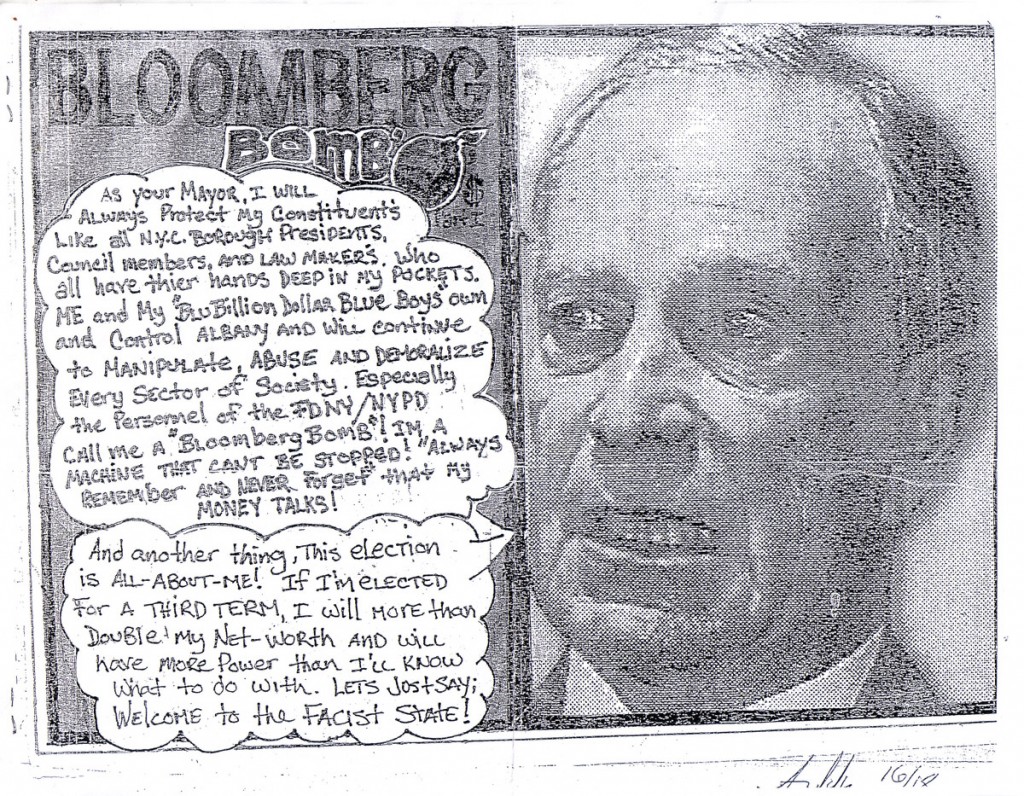 BLOOMBERG
BOMB'S
$
As your MAYOR, I WILL
ALWAYS Protect My Constituent's
Like all N.Y.C. BOROUGH PresIDENTS,
Council members, AND LAW MAKERS, Who
all have thier hands DEEP IN MY POCKETS.
ME and My "Blu Billion Dollar BLUE Boys" own
and Control ALBANY AND Will continue
to MANIPULATE, ABUSE AND DEMORALIZE
Every Sector of Society. Especially
the Personnel of the FDNY/NYPD
CAll me A "Bloomberg BOMB"! IM A
MACHINE THAT CANT BE STOPPED! "ALWAYS
REMEMber AND NEVER Forget" that my
MONEY TALKS!
And another thing, This election
is ALL-ABOUT-ME! If I'm eLECTED
For A THIRD TERM, I will more than
Double my Net-Worth AND will
have more Power than I'LL KNOW
What to do with. LETS JustSAY;
Welcome to the FACIST STATE!
16/18